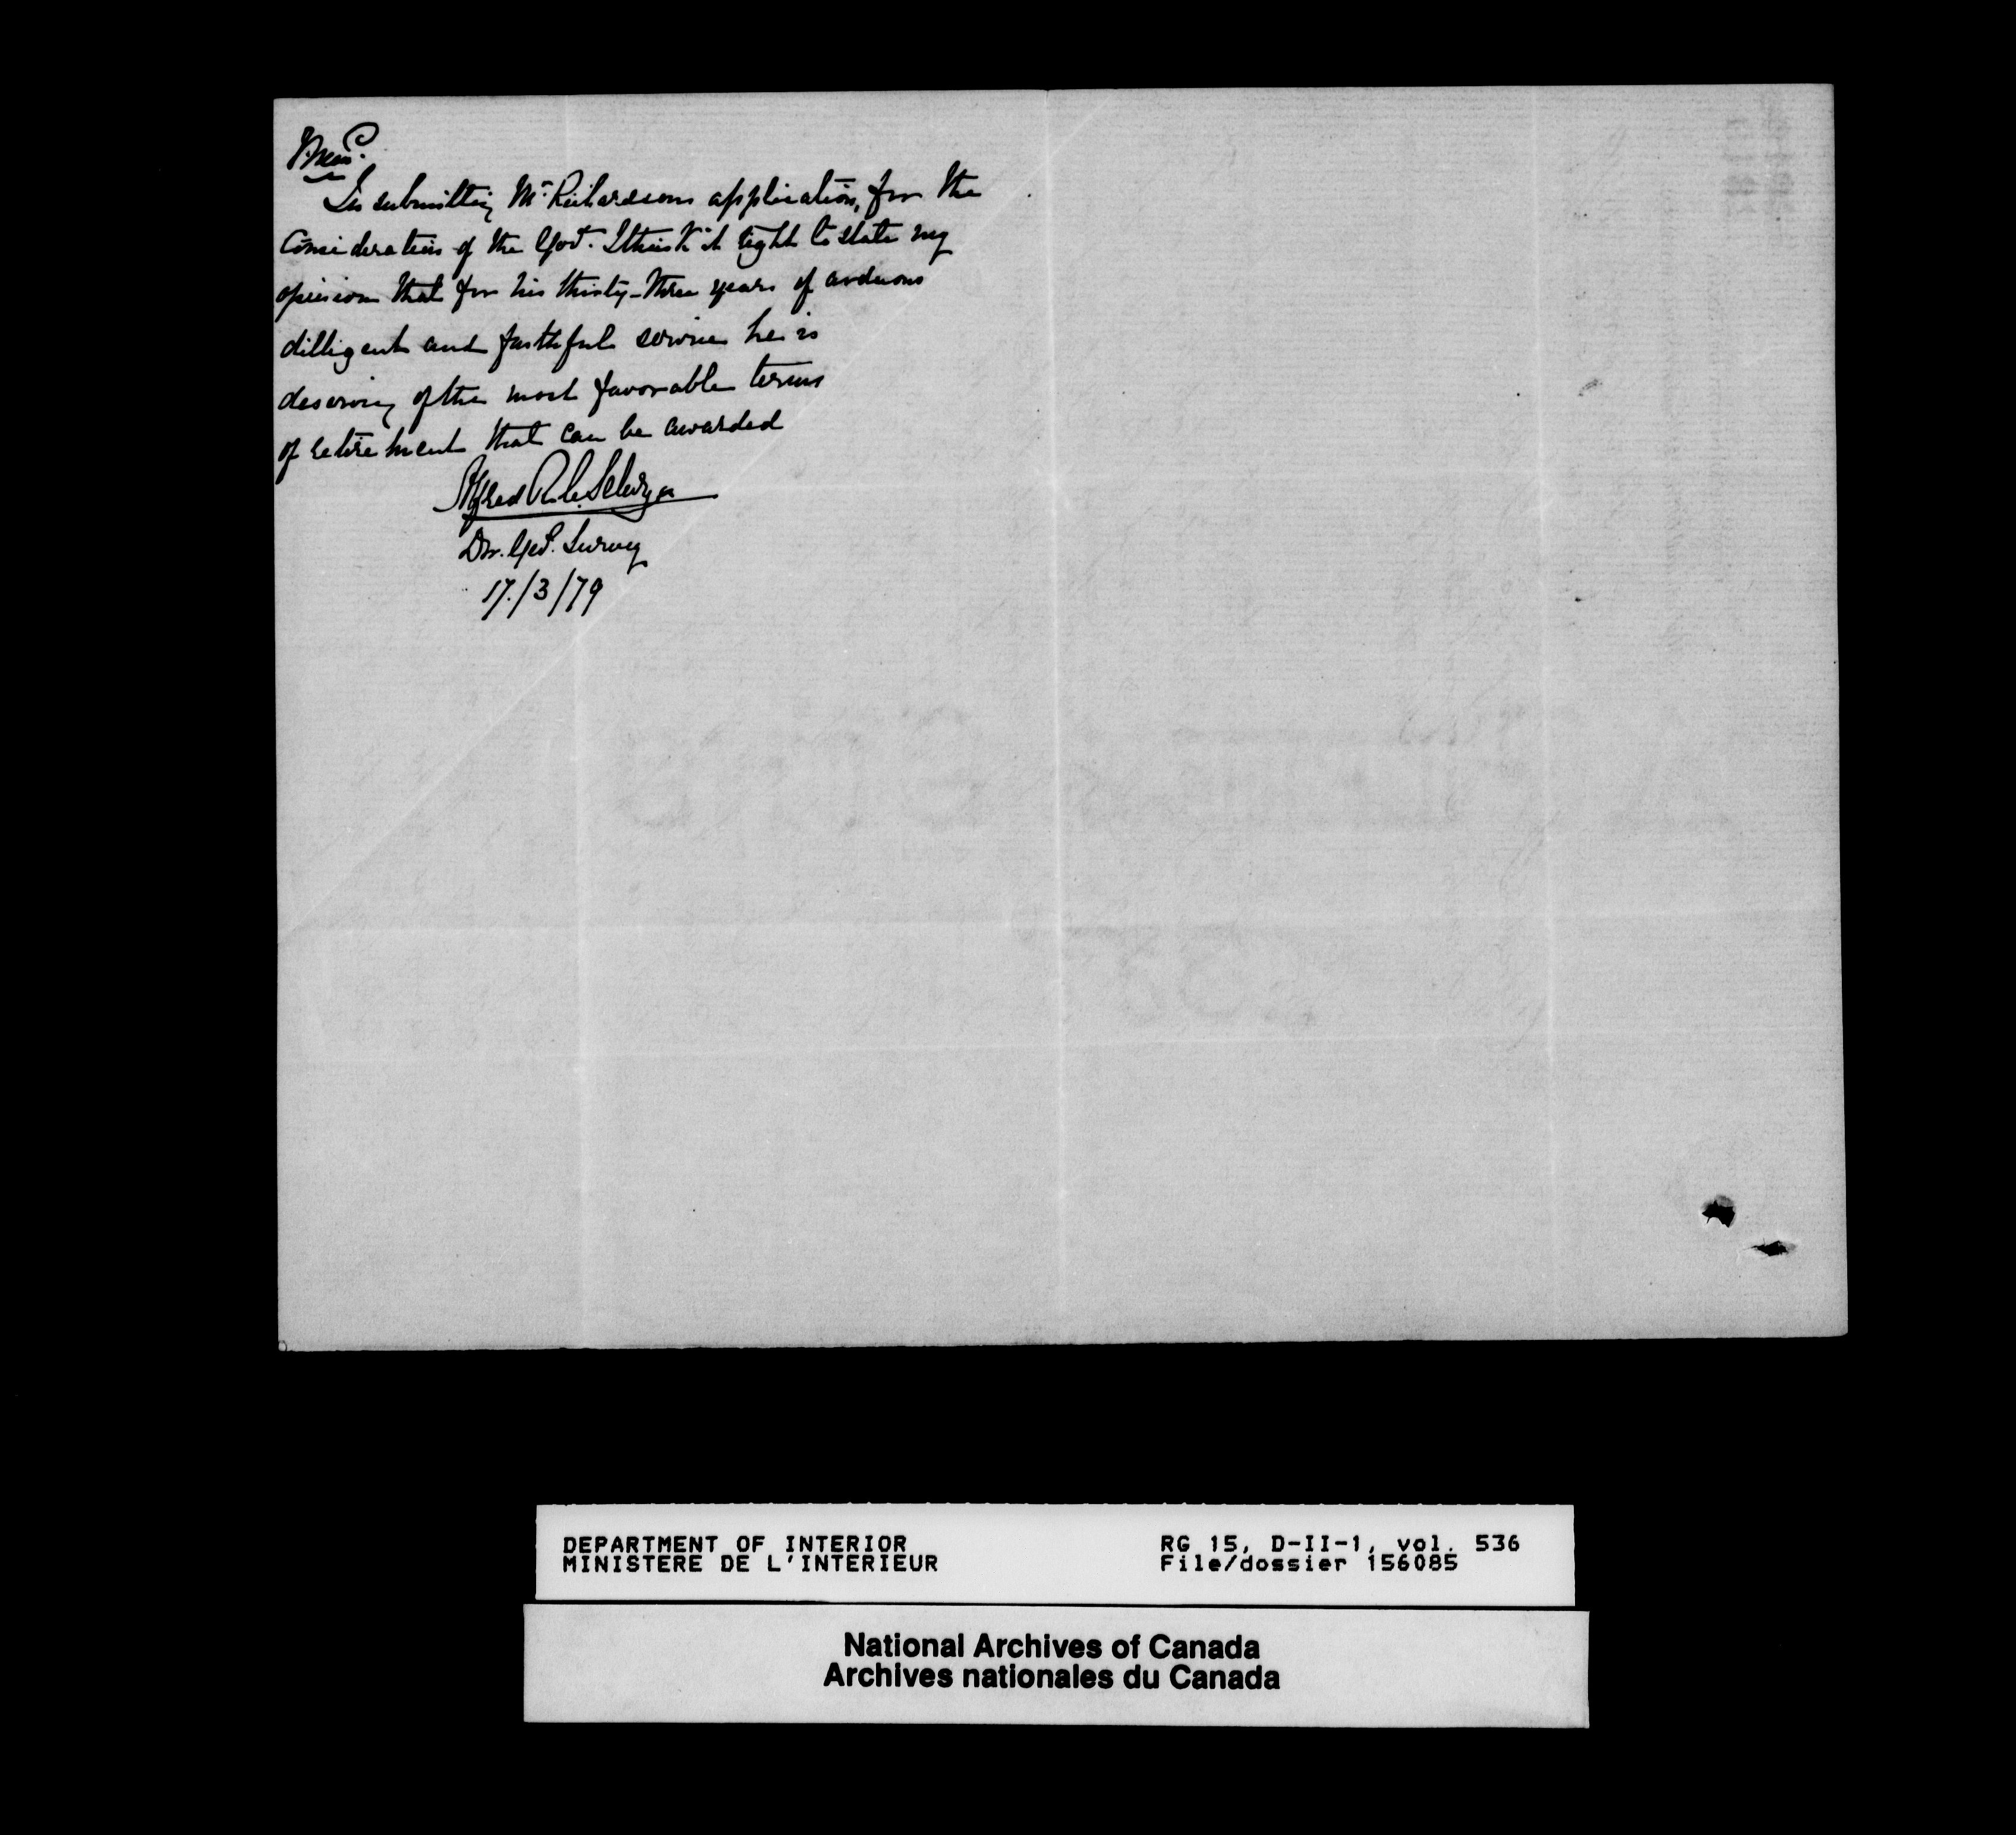 Memo.
In submitting Mr. Richardsons application, for the
Consideration of the Govt. I think it right to state my
opinion that for his thirty-three years of arduous
dilligent and faithful service he is
deserving of the most favorable terms
of retirement that can be awarded
Alfred R. C. Selwyn
Dir. Geol. Survey
17./3/79
DEPARTMENT OF INTERIOR RG 15, D-II-1, vol. 536
MINISTERE DE L'INTERIEUR File/dossier 156085
National Archives of Canada
Archives nationales du Canada